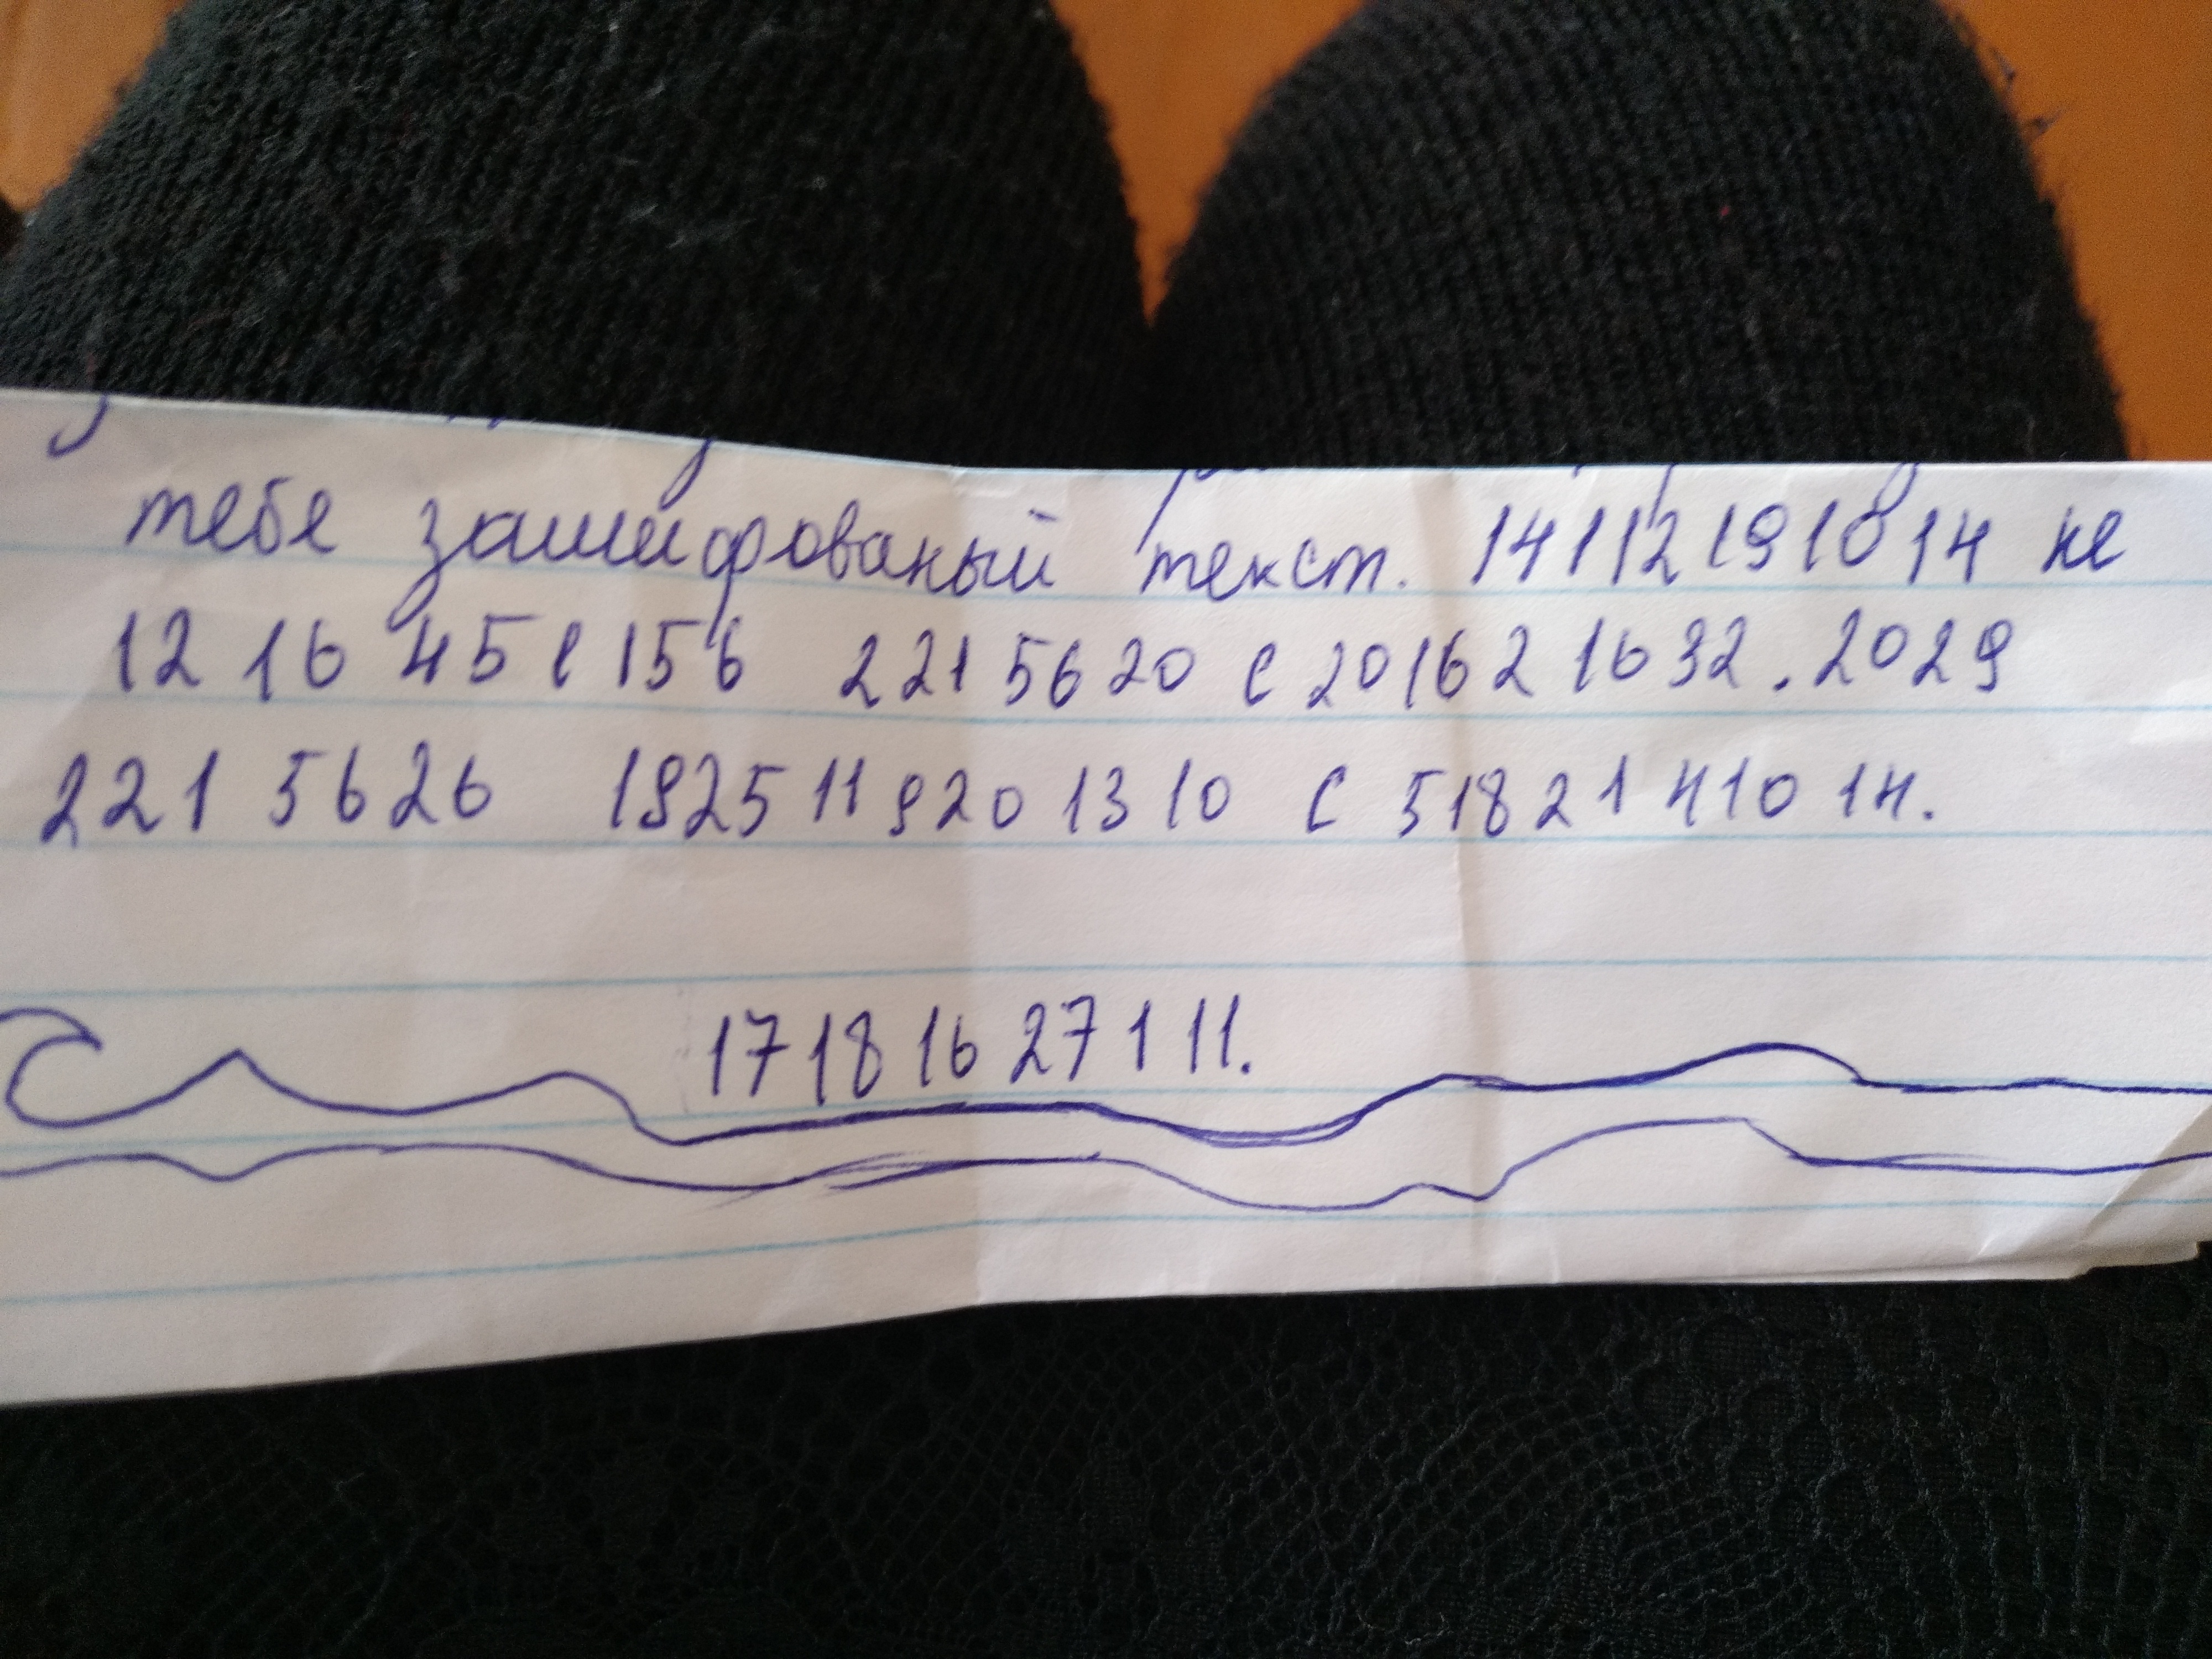 тебе зашифрованый текст. 14 1 12 19 10 14 не
12 16 4 5 е 15 6 2 21 5 6 20 с 20 16 2 16 32. 20 29
2 21 5 6 26 19 25 11 9 20 13 10 с 5 18 21 4 10 14.
17 18 16 27 1 11.